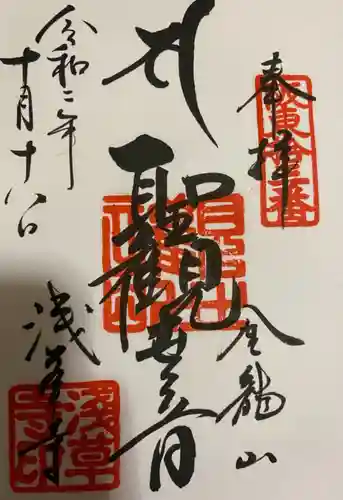 奉拝
坂東拾三番
金龍山
聖観世音
浅草寺
令和二年
十月十八日
浅草寺印